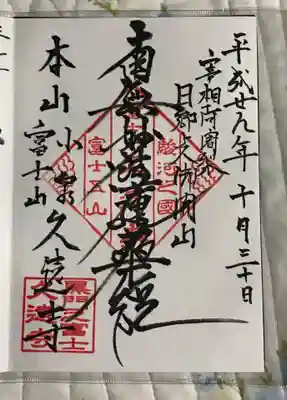 平成廿九年十月三十日
宰相阿闍梨
日郷上人開山
駿河之國
南無妙法蓮華経
富士五山
本山小泉久遠寺
富士山